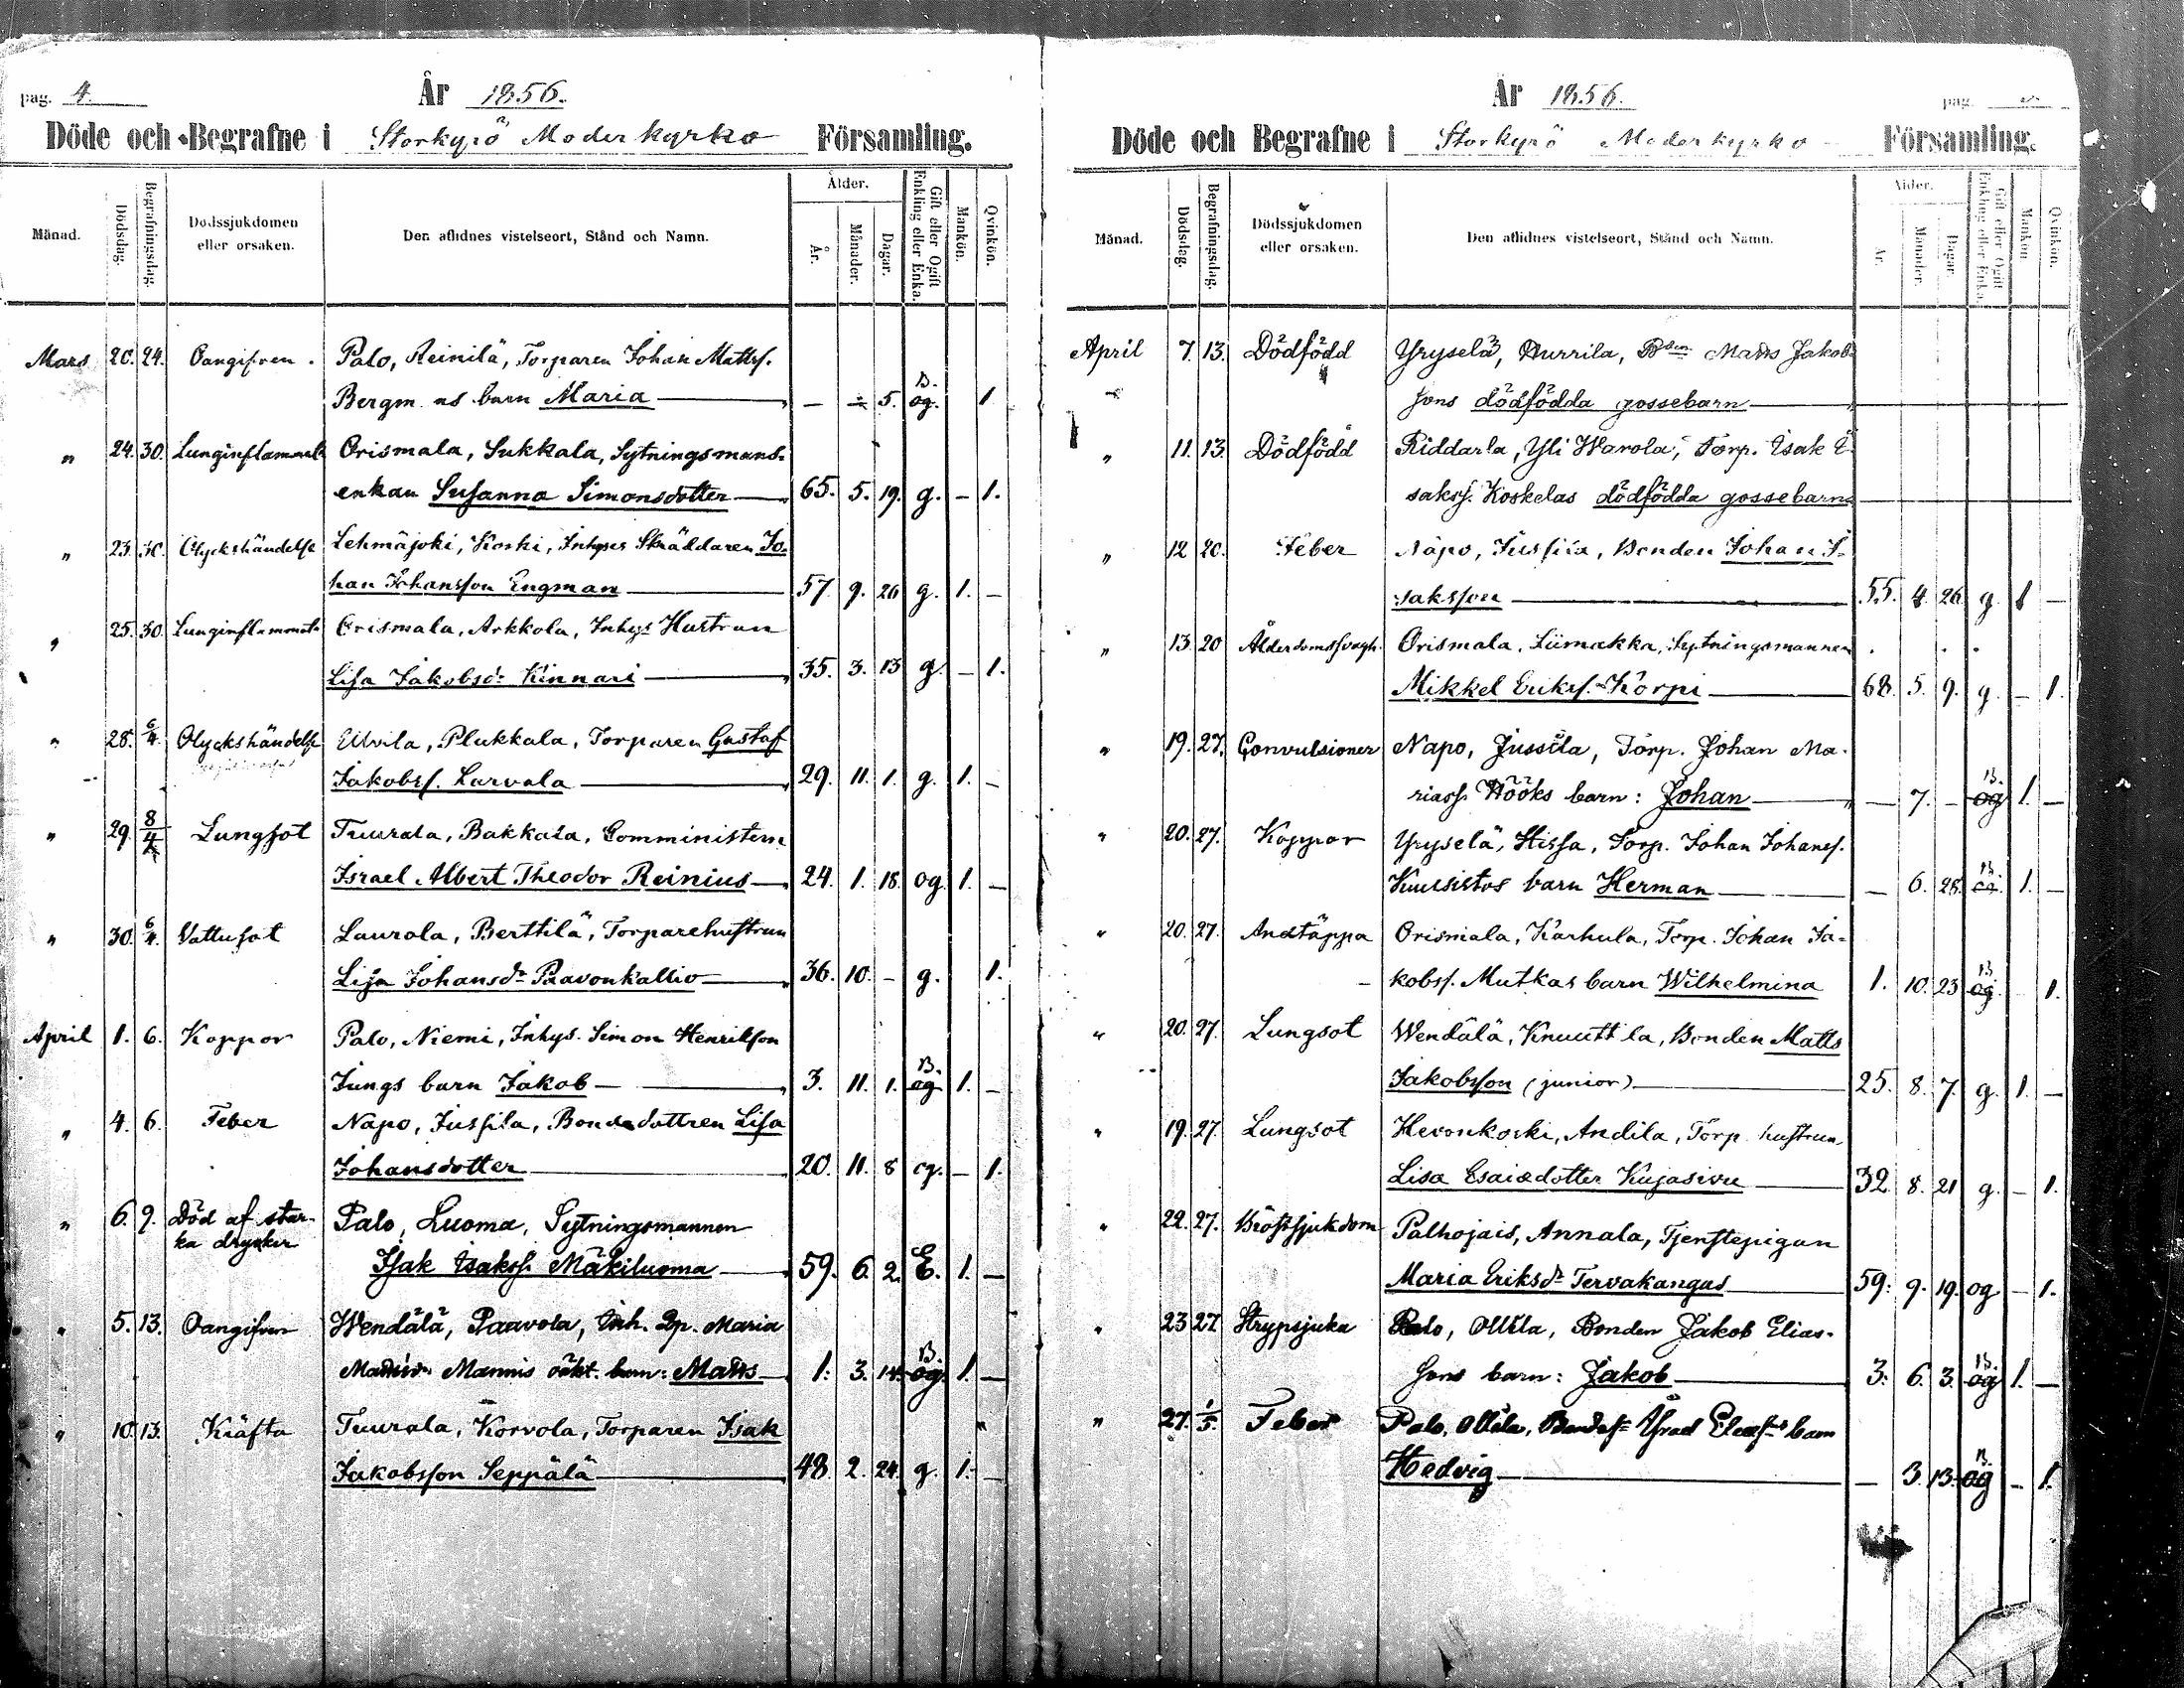 pag. 4.
År 1856.
Döde och Begrafne i Storkyrö Moderkyrko Församling.
Månad.
Dödsdag.
Begrafningsdag.
Dödssjukdomen
eller orsaken.
Den aflidnes vistelseort, Stånd och Namn.
Ålder.
År.
Månader.
Dagar.
Gift eller Ogift
Enkling eller Enka.
Mankön.
Qvinkön.
Mars 20. 24. Oangifven. Palo, Reinilä, Torparen Johan Mattss.
Bergm as barn Maria — — 5. B. og. 1
" 24. 30. Lunginflammat. Orismala, Sukkala, Sytningsmans-
enkan Susanna Simonsdotter 65. 5. 19. g. — 1.
" 23. 30. Olyckshändelse Lehmäjoki, Koski, Inhyses Skräddaren Jo-
han Johansson Engman 57. 9. 26 g. 1. —
" 25. 30. Lunginflammat. Orismala, Arkkola, Inhys. Hustrun
Lisa Jakobsdr Kinnari 35. 3. 13 g. — 1.
" 28. 6/4 Olyckshändelse Ulvila, Plukkala, Torparen Gustaf
Jakobss. Larvala 29. 11. 1. g. 1. —
" 29. 8/4 Lungsot Tuurala, Bakkala, Comministern
Israel Albert Theodor Reinius 24. 1. 18. og. 1. —
" 30. 6/4 Vattusot Laurola, Berttilä, Torparehustrun
Lisa Johansdr Paavonkallio 36. 10. — g. 1.
April 1. 6. Koppor Palo, Niemi, Inhys. Simon Henrikson
Jungs barn Jakob 3. 11. 1. B. og 1. —
" 4. 6. Feber Napo, Jussila, Bondedottren Lisa
Johansdotter 20. 11. 8 og. — 1.
" 6. 9. Död af star- Palo, Luoma, Sytningsmannen
ka drycker
Isak Isakss. Mäkiluoma 59. 6. 2. E. 1. —
" 5. 13. Oangifven Wendälä, Paavola, Inh. Qp. Maria
Mannis oäkt. barn: Matts 1. 3. 14. B. og. 1. —
" 10. 13. Kräfta Tuurala, Korvola, Torparen Isak
Jakobsson Seppälä 48. 2. 24. g. 1. —
År 1856.
pag.
Döde och Begrafne i Storkyrö Moderkyrko Församling.
Månad.
Dödsdag.
Begrafningsdag.
Dödssjukdomen
eller orsaken.
Den aflidnes vistelseort, Stånd och Namn.
Ålder.
År.
Månader.
Dagar.
Gift eller Ogift
Enkling eller Enka.
Mankön
Qvinkön.
April 7. 13. Dödfödd Yryselä, Hurrila, Bden Matts Jakob-
sons dödfödda gossebarn
" 11. 13 Dödfödd Riddarla, Yli Warola, Torp. Isak I-
sakss. Koskelas dödfödda gossebarn
" 12 20. Feber Napo, Jussila, Bonden Johan I-
saksson 55. 4. 26. g. 1 —
" 13. 20 Ålderdomssvagh. Orismala, Liimakka, Sytningsmannen
Mikkel Erikss. Korpi 68. 5. 9. g. — 1.
" 19. 27. Convulsioner Napo, Jussila, Torp. Johan Ma-
riass. Hööks barn: Johan — 7. — B. og 1. —
" 20. 27. Koppor Yryselä, Hissa, Torp. Johan Johanss.
Kuusistos barn Herman — 6. 28. B. og. 1. —
" 20. 27. Andtäppa Orismala, Karhula, Torp. Johan Ja-
kobss. Mutkas barn Wilhelmina 1. 10. 23 B. og. 1.
" 20. 27. Lungsot Wendälä, Knuuttila, Bonden Matts
Jakobsson (junior) 25. 8. 7. g. 1. —
" 19. 27. Lungsot Hevonkoski, Andila, Torp. hustrun
Lisa Esaiedotter Kujasivu 32 8. 21 g. — 1.
" 22. 27. Bröstsjukdom Palhojais, Annala, Tjenstepigan
Maria Eriksdr Tervakangas 59. 9. 19. og — 1.
" 23 27 Strypsjuka Palo, Ollila, Bonden Jakob Elias-
sons barn: Jakob 3. 6. 3. B. og 1. —
" 27. 1/5. Feber Palo, Ollila, barn
Hedvig — 3. 13. B. og — 1.